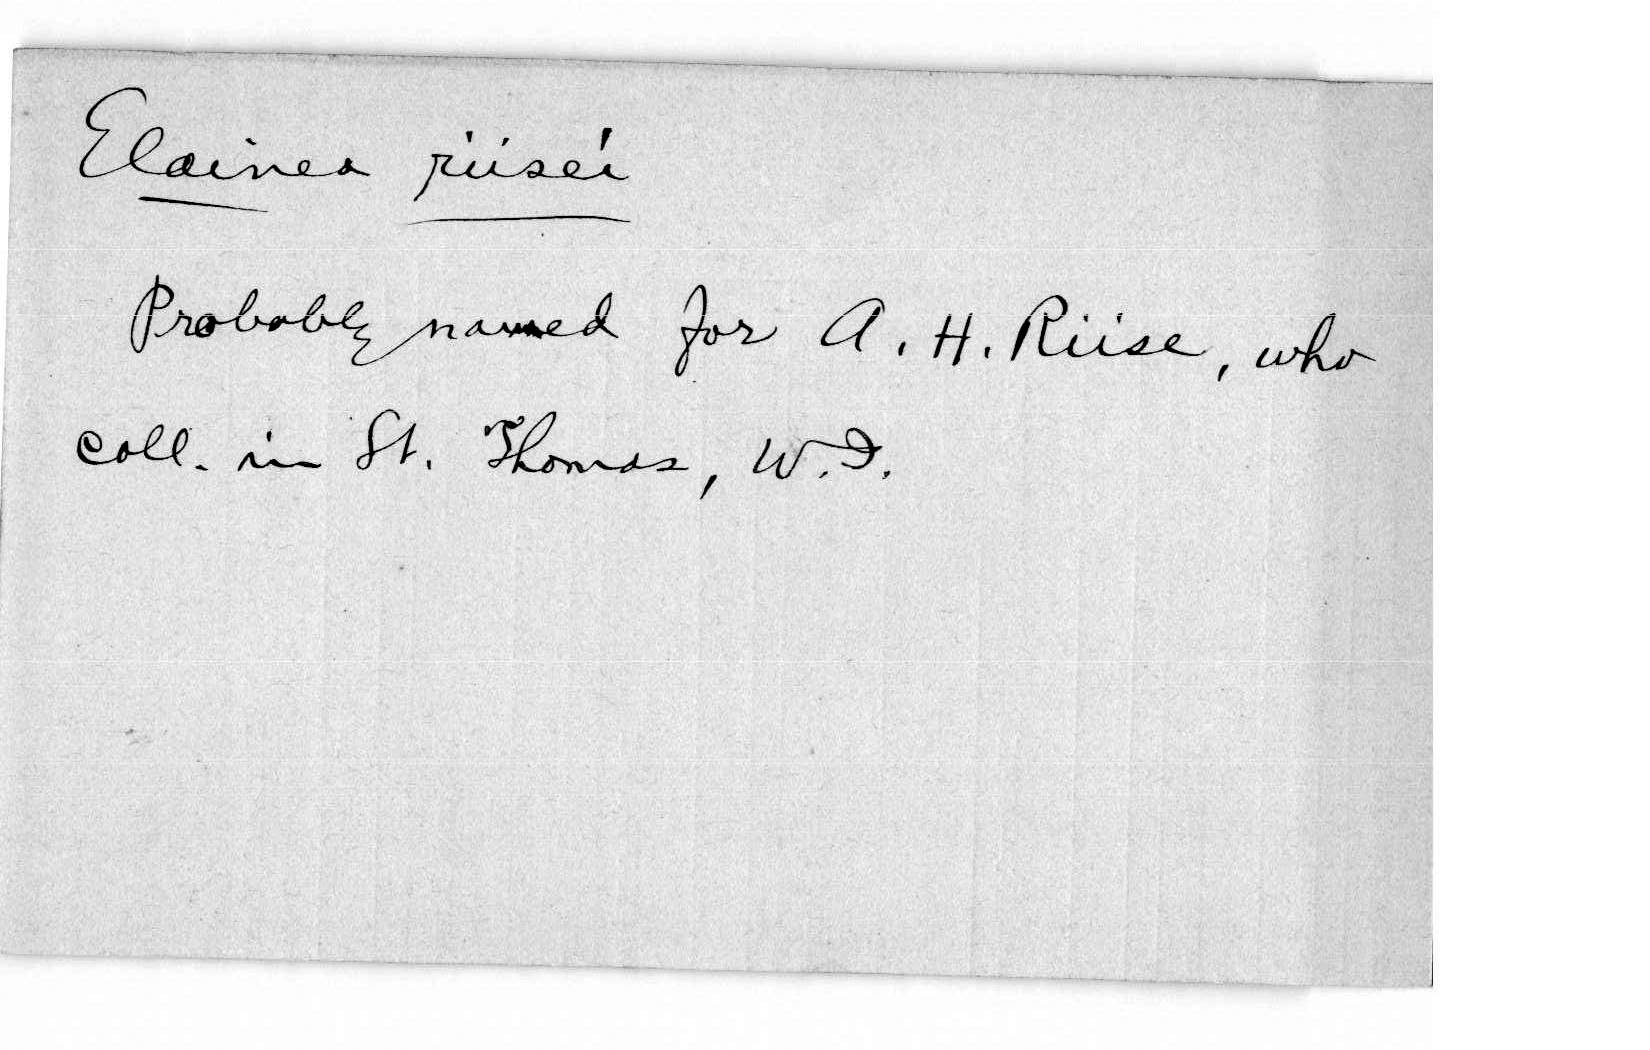 Elainea riisei
Probably named for A. H. Riise, who
coll. in St. Thomas, W.I.